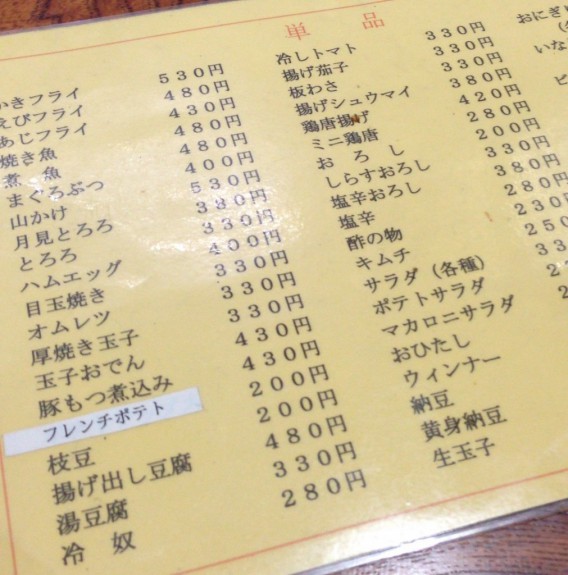 単品
かきフライ 530円
えびフライ 480円
あじフライ 430円
焼き魚 480円
煮 魚 480円
まぐろぶつ 400円
山かけ 530円
月見とろろ 380円
とろろ 330円
ハムエッグ 400円
目玉焼き 330円
オムレツ 330円
厚焼き玉子 330円
玉子おでん 430円
豚もつ煮込み 430円
フレンチポテト 200円
枝豆 200円
揚げ出し豆腐 480円
湯豆腐 330円
冷 奴 280円
冷しトマト 330円
揚げ茄子 330円
板わさ 330円
揚げシュウマイ 380円
鶏唐揚げ 420円
ミニ鶏唐 280円
お ろ し 200円
しらすおろし 330円
塩辛おろし 380円
塩辛 280円
酢の物 230
キムチ 250
サラダ（各種） 33
ポテトサラダ
マカロニサラダ
おひたし
ウィンナー
納豆
黄身納豆
生玉子
おにぎり
いな